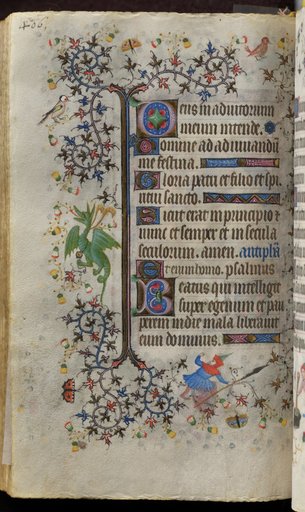 435
Deus in adiutorium
meum intende.
Domine ad adiuuandū
me festina.
Gloria patri et filio et spi
ritui sancto.
Sicut erat in principio et
nunc et semper et in secula
seculorum. amen. antiphā
Et enim homo. psalmus
Beatus qui intelligit
super egenum et pau
perem in die mala liberauit
eum dominus.